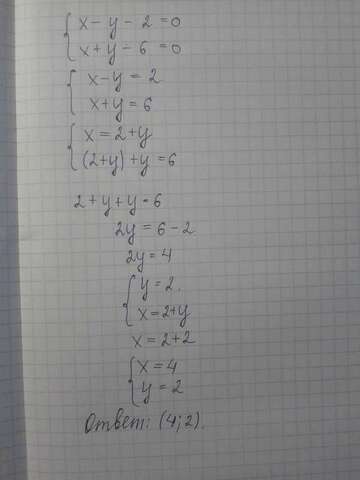 x - y - 2 = 0
x + y - 6 = 0
x - y = 2
x + y = 6
x = 2 + y
(2+y) + y = 6
2 + y + y = 6
2y = 6 - 2
2y = 4
y = 2.
x = 2 + y
x = 2 + 2
x = 4
y = 2
Ответ: (4; 2).